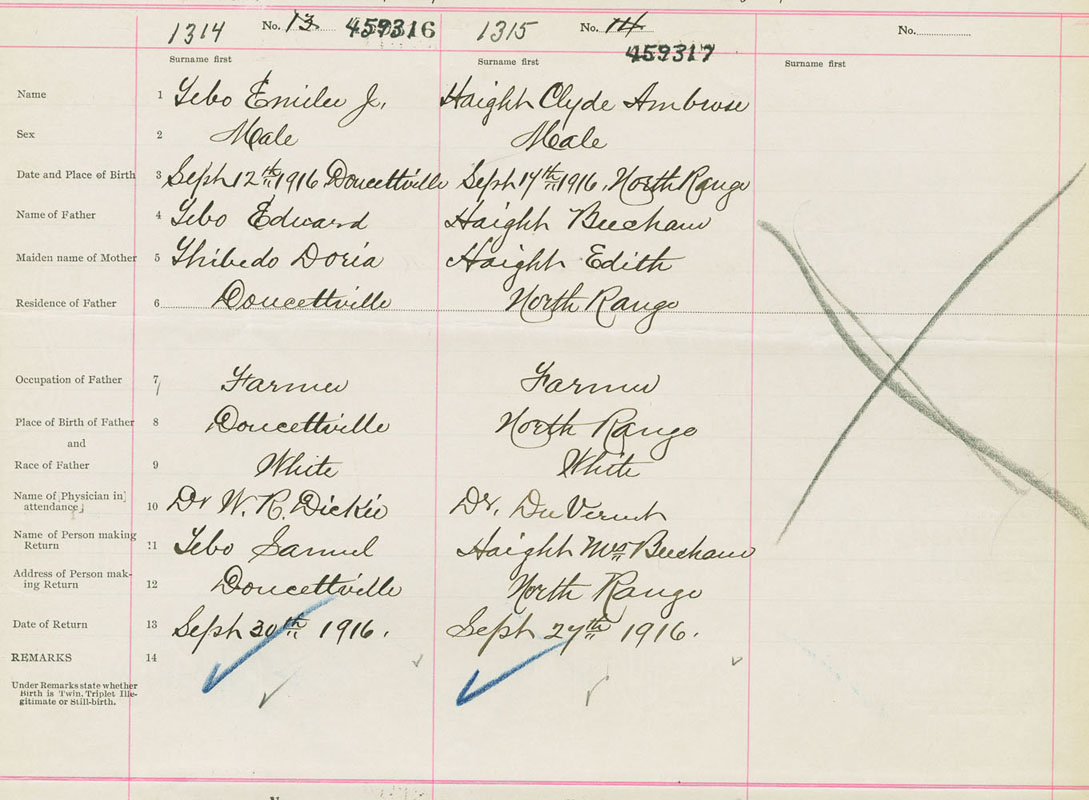 1314 No. 13 459316 1315 No. 14 459317 No.
Surname first Surname first Surname first
Name 1 Tebo Emilee Jr. Haight Clyde Ambrose
Sex 2 Male Male
Date and Place of Birth 3 Sept 12th 1916 Doucettville Sept 14th 1916, North Range
Name of Father 4 Tebo Edward Haight Beecham
Maiden name of Mother 5 Thibedo Doria Haight Edith
Residence of Father 6 Doucettville North Range
Occupation of Father 7 Farmer Farmer
Place of Birth of Father 8 Doucettville North Range
and
Race of Father 9 White White
Name of [Physician in
attendance] 10 Dr W. R. Dickie Dr. Du Vernet
Name of Person making
Return 11 Tebo Samuel Haight Mrs Beecham
Address of Person mak-
ing Return 12 Doucettville North Range
Date of Return 13 Sept 30th 1916. Sept 27th 1916.
REMARKS 14
Under Remarks state whether
Birth is Twin, Triplet Ille-
gitimate or Still-birth.